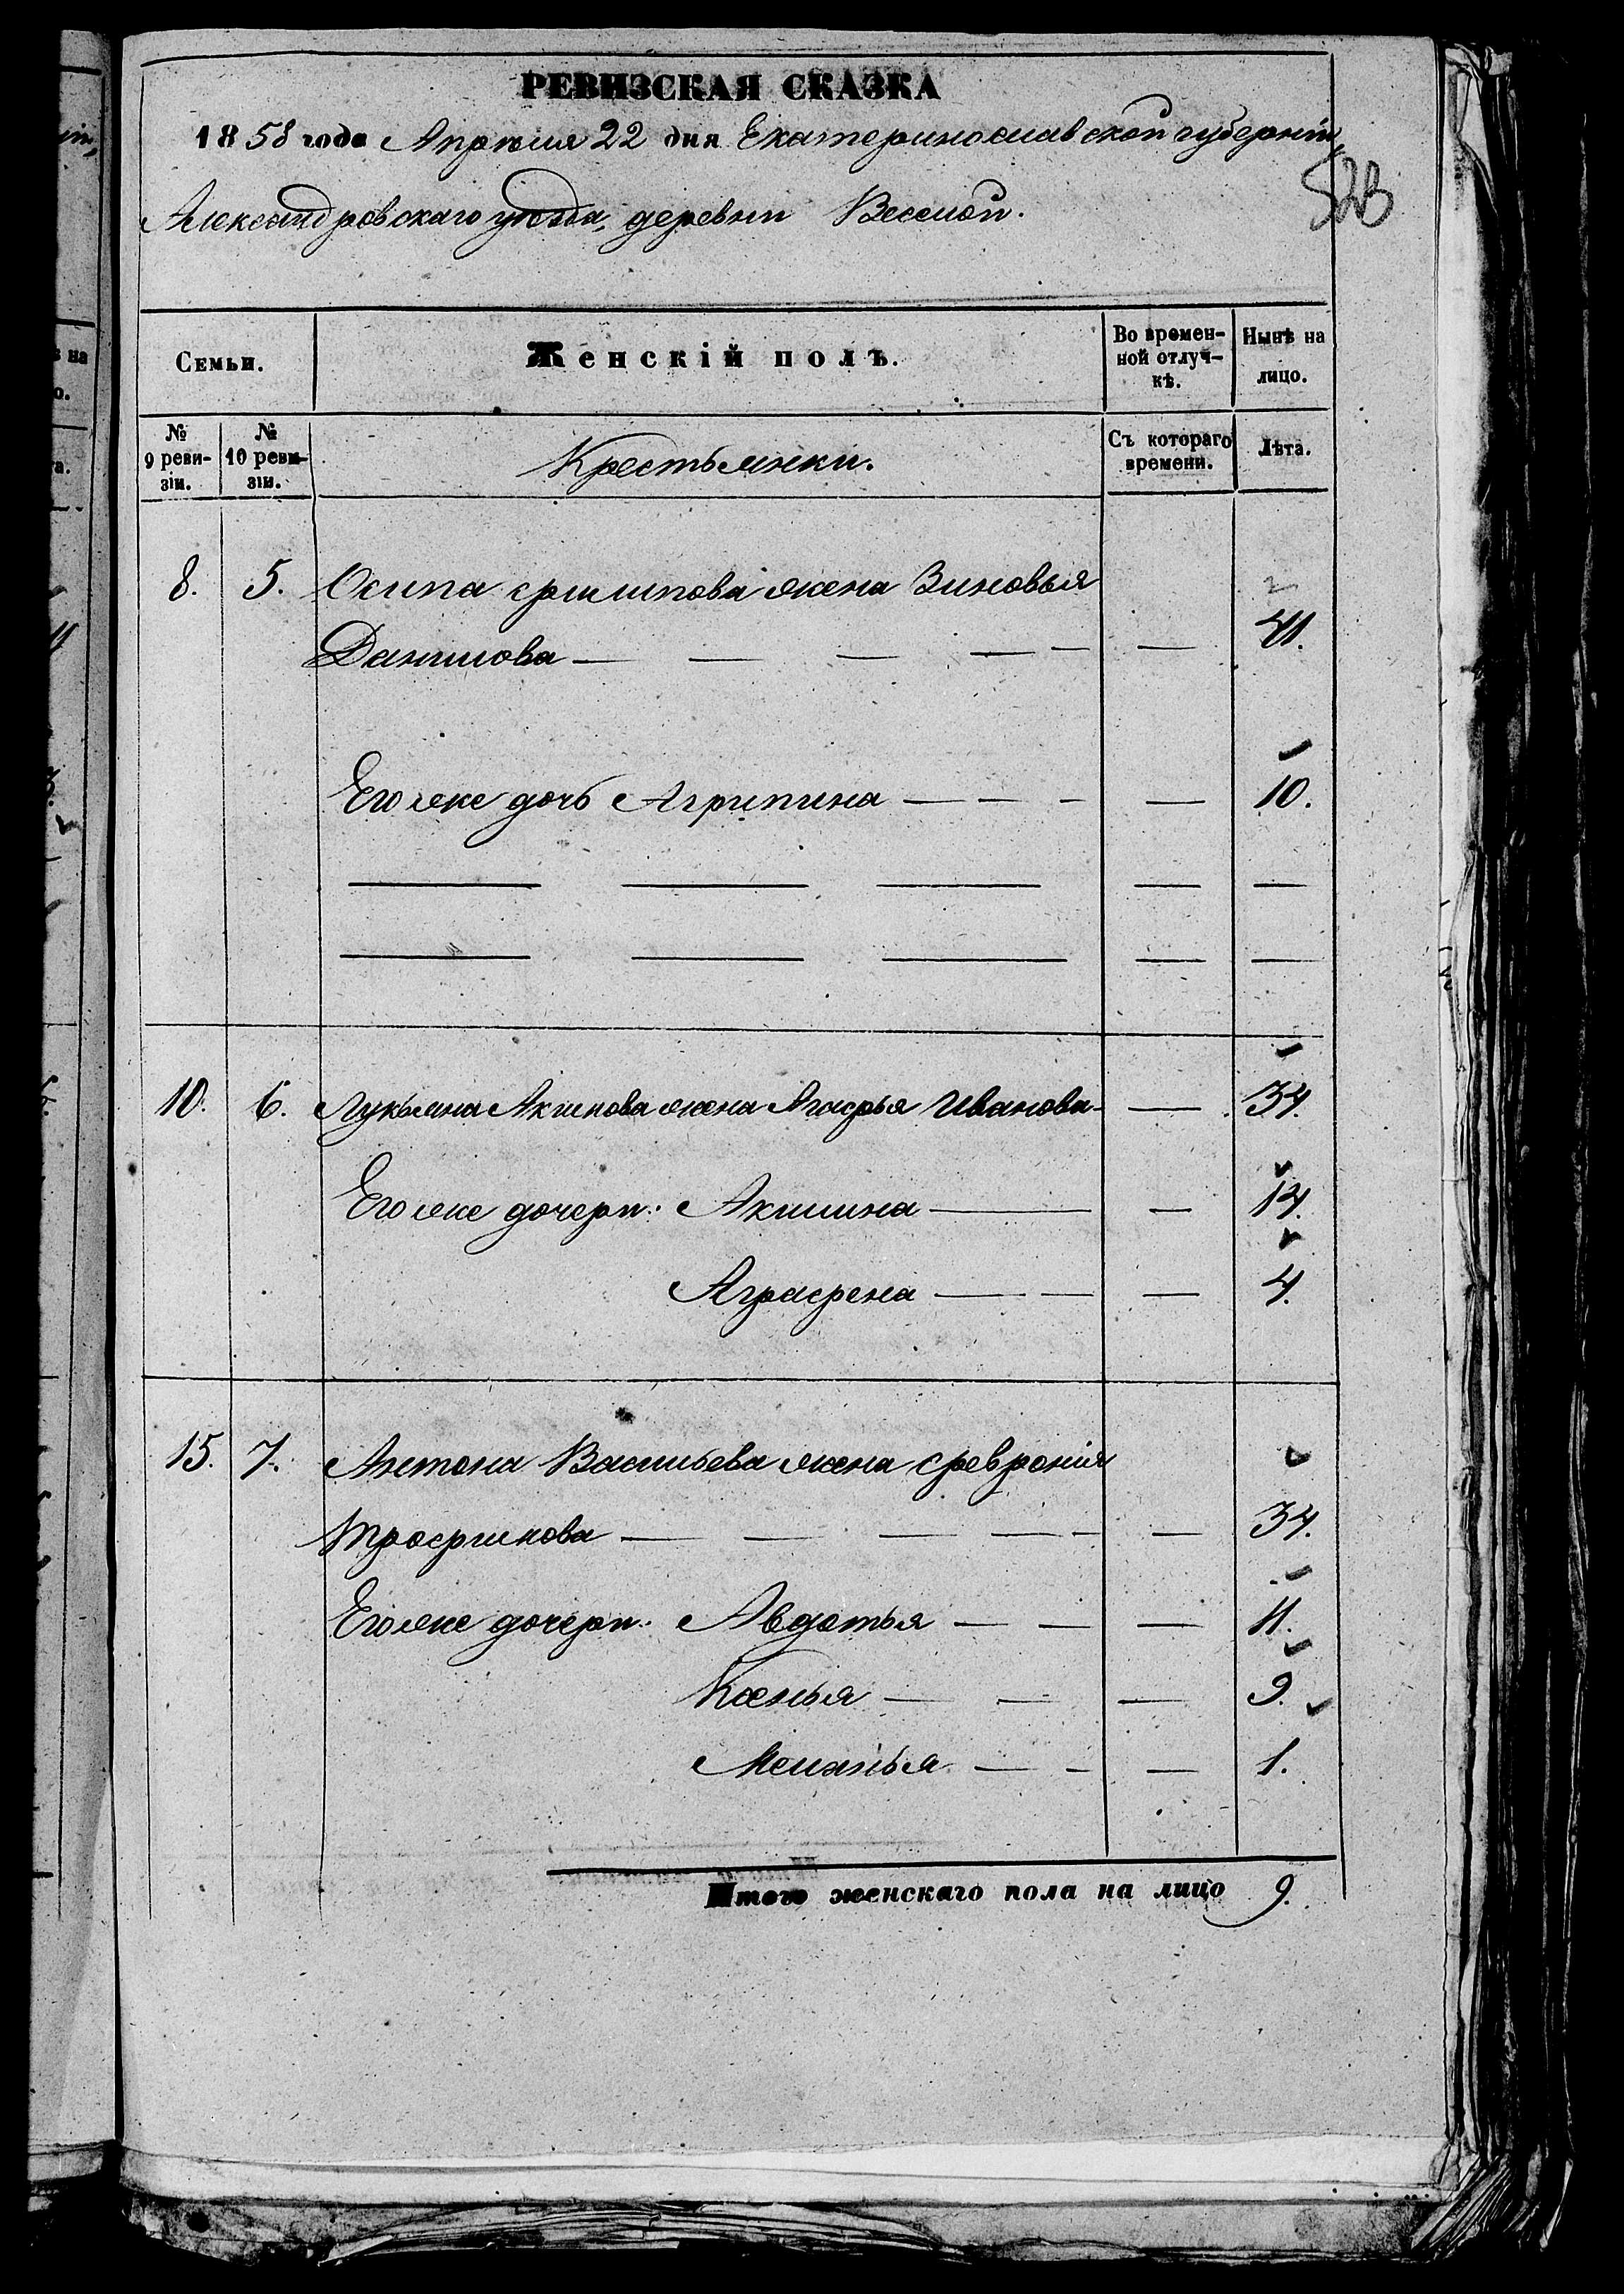 РЕВИЗСКАЯ СКАЗКА
1858 года Апрѣля 22 дня Екатеринославской губерніи,
523
Александровскаго уѣзда, деревни Веселой.
Семьи.
Женскій полъ.
Во времен-
ной отлуч-
кѣ.
Нынѣ на
лицо.
№
9 реви-
зіи.
№
10 реви-
зіи.
Крестьянки.
Съ котораго
времени.
Лѣта.
8. 5. Осипа Филипова жена Зиновья
Данилова — — — — — — 41.
Его же дочь Агрипина — — — — 10.
— — — — —
— — — — —
10. 6. Лукьяна Акимова жена Агафья Иванова — — 34.
Его же дочери: Акилина — — 14.
Аграфена — — — 4.
15. 7. Антона Васильева жена Февронія
Трофимова — — — — — — 34.
Его же дочери: Авдотья — — — 11.
Ксенья — — — 9.
Меланья — — — 1.
Итого женскаго пола на лицо 9.